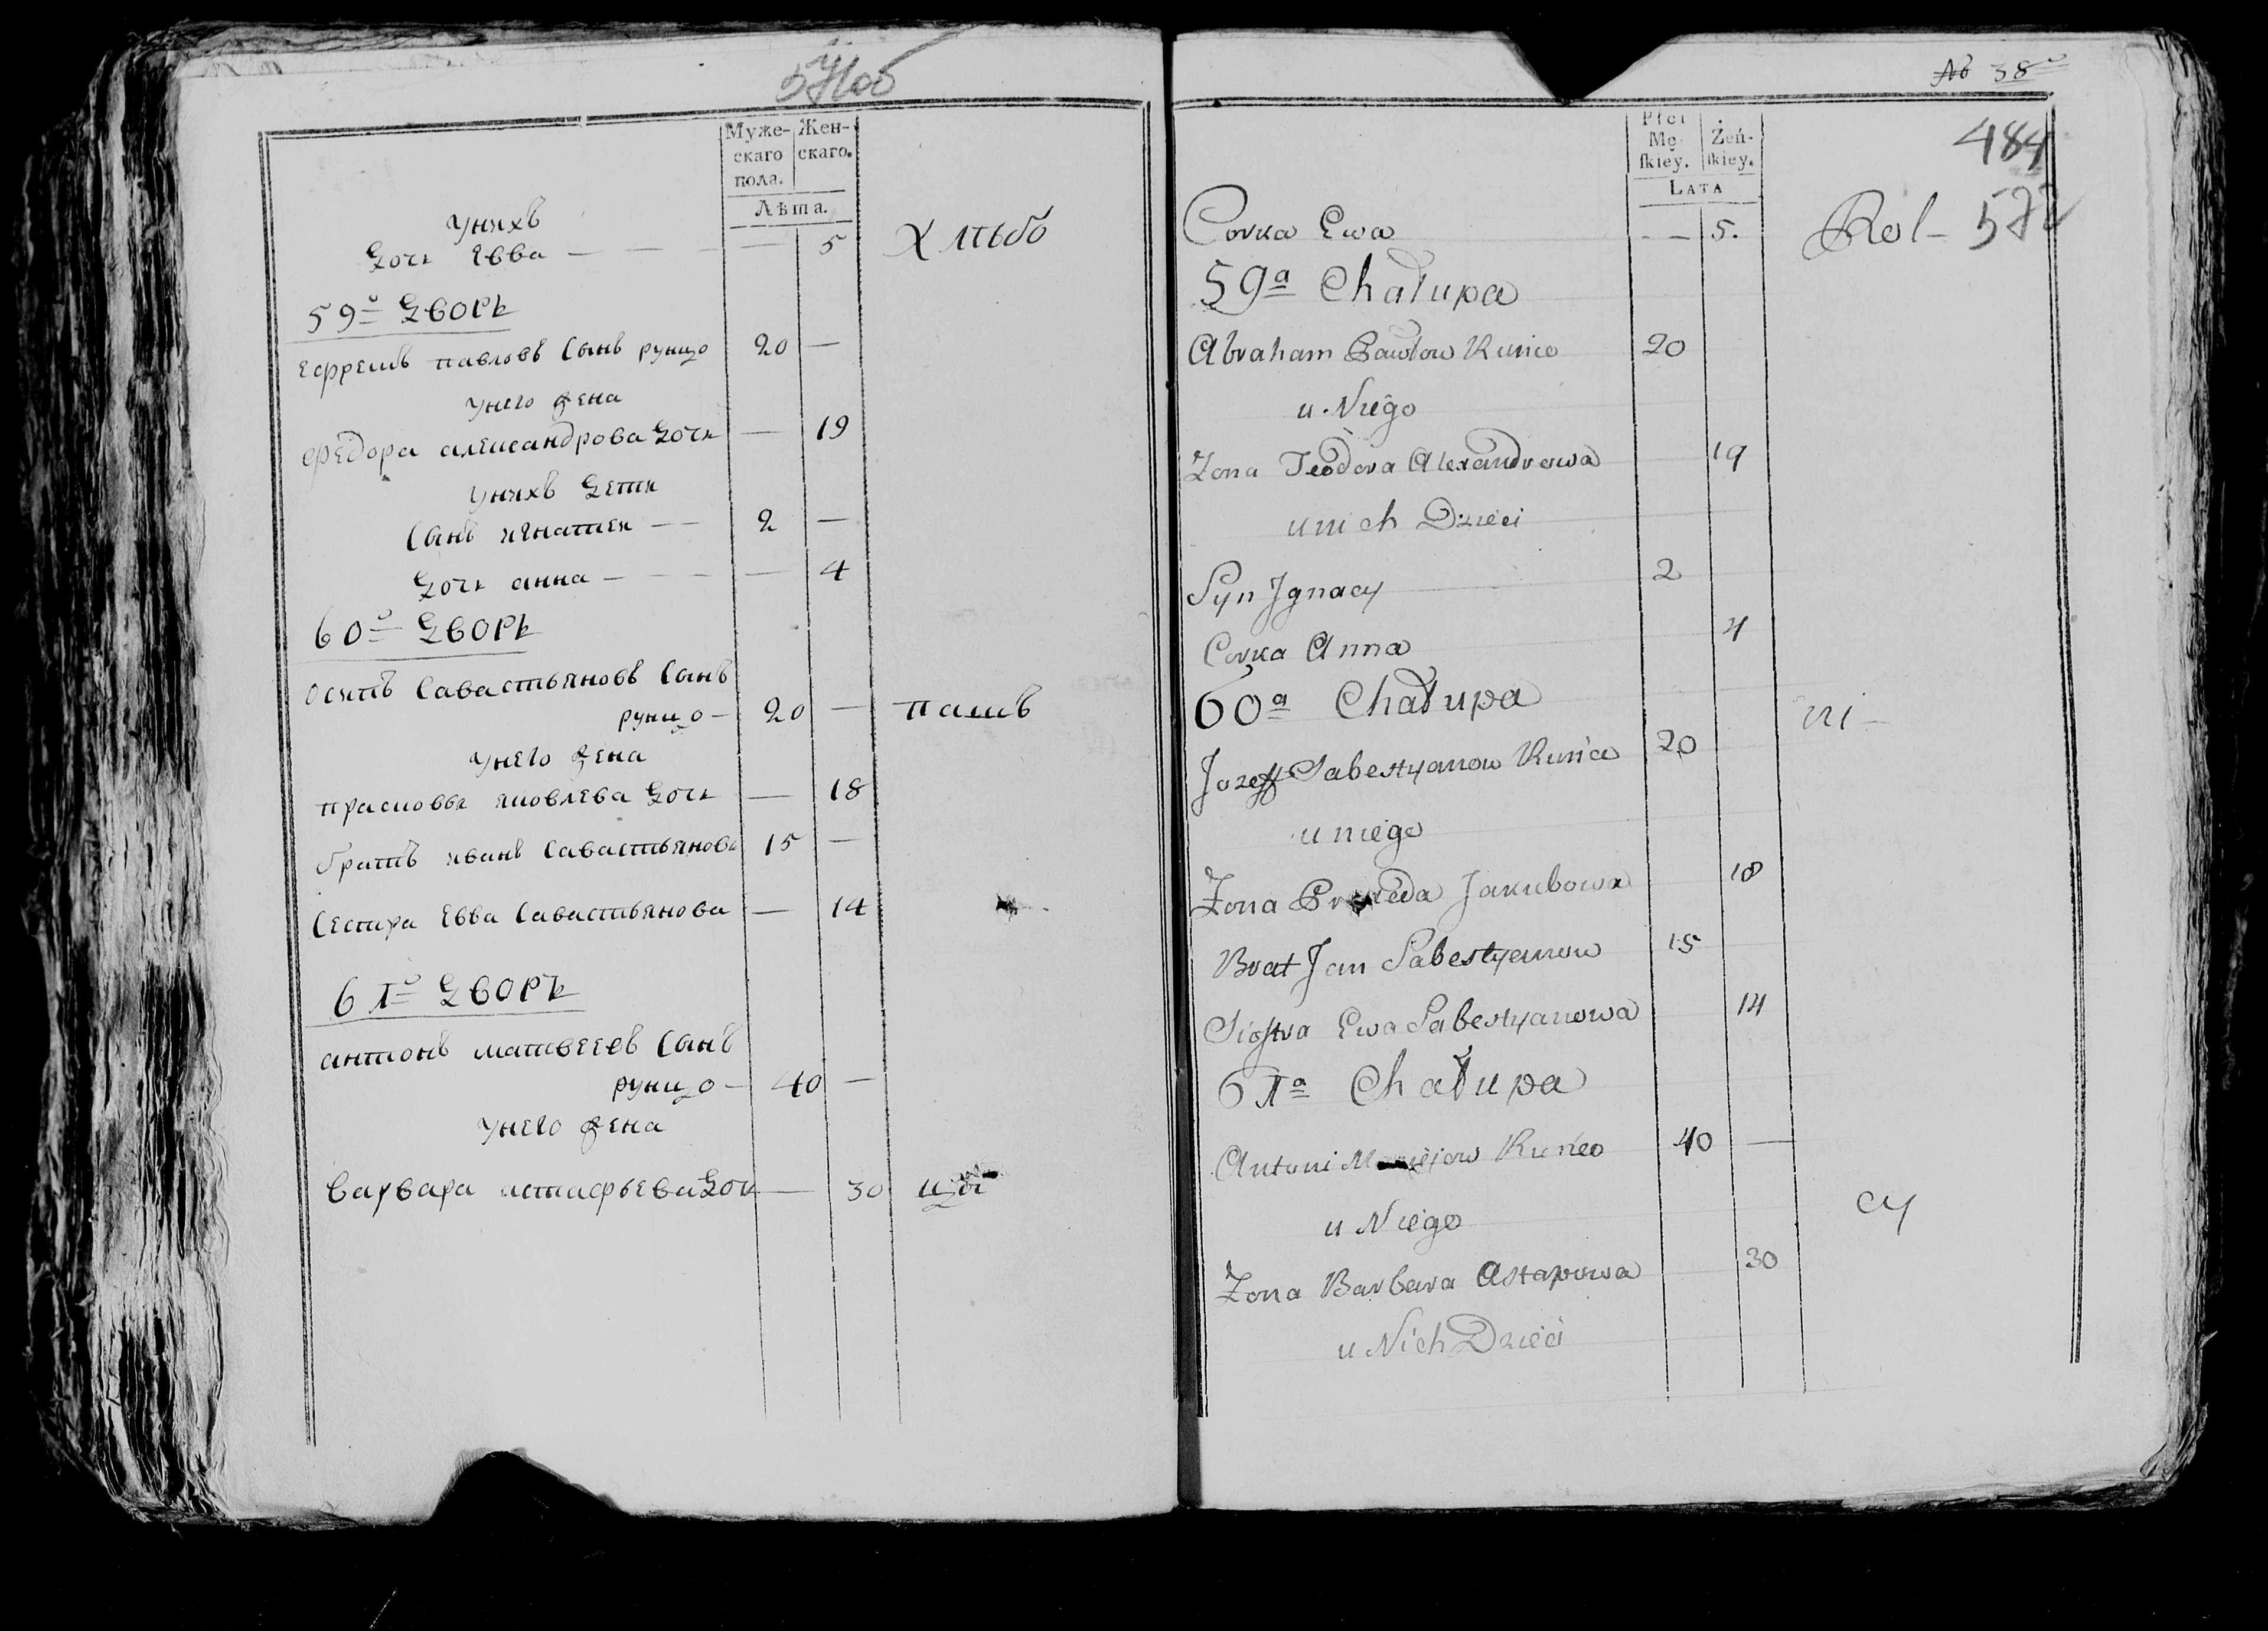 Муже-
скаго
пола.
Жен-
скаго.
Лѣта.
унихъ
дочь Евва — — 5 хлѣбо
59й дворъ
Ефремъ павловъ сынъ рунцо 20 —
унего жена
федора александрова дочь — 19
унихъ дети
сынъ игнатей — 2 —
дочь анна — — 4
60й дворъ
осипъ савастьяновъ сынъ
рунцо — 20 — пашъ
унего жена
прасковья яковлева дочь — 18
братъ иванъ савастьяновъ 15 —
сестра Евва савастьянова — 14
61й дворъ
антонъ матвеевъ сынъ
рунцо — 40 —
унего жена
варвара астафьева дочь — 30 цы
№ 38
484
Płci
Mę-
ſkiey.
Żeń-
ſkiey.
Lata
Corka Ewa — 5. Rol- 572
59a Chałupa
Abraham Pawłow Runco 20
u Niego
Zona Teodora Alexandrowa 19
unich Dzieci
Syn Ignacy 2
Corka Anna 4
60a Chałupa ni-
Jozeff Sabestyanow Runco 20
u niego
Zona Jakubowa 18
Brat Jan Sabestyanow 15
Siostra Ewa Sabestyanowa 14
61a Chałupa
Antoni Runco 40 —
u Niego cy
Zona Barbara Astapowa 30
u Nich Dzieci